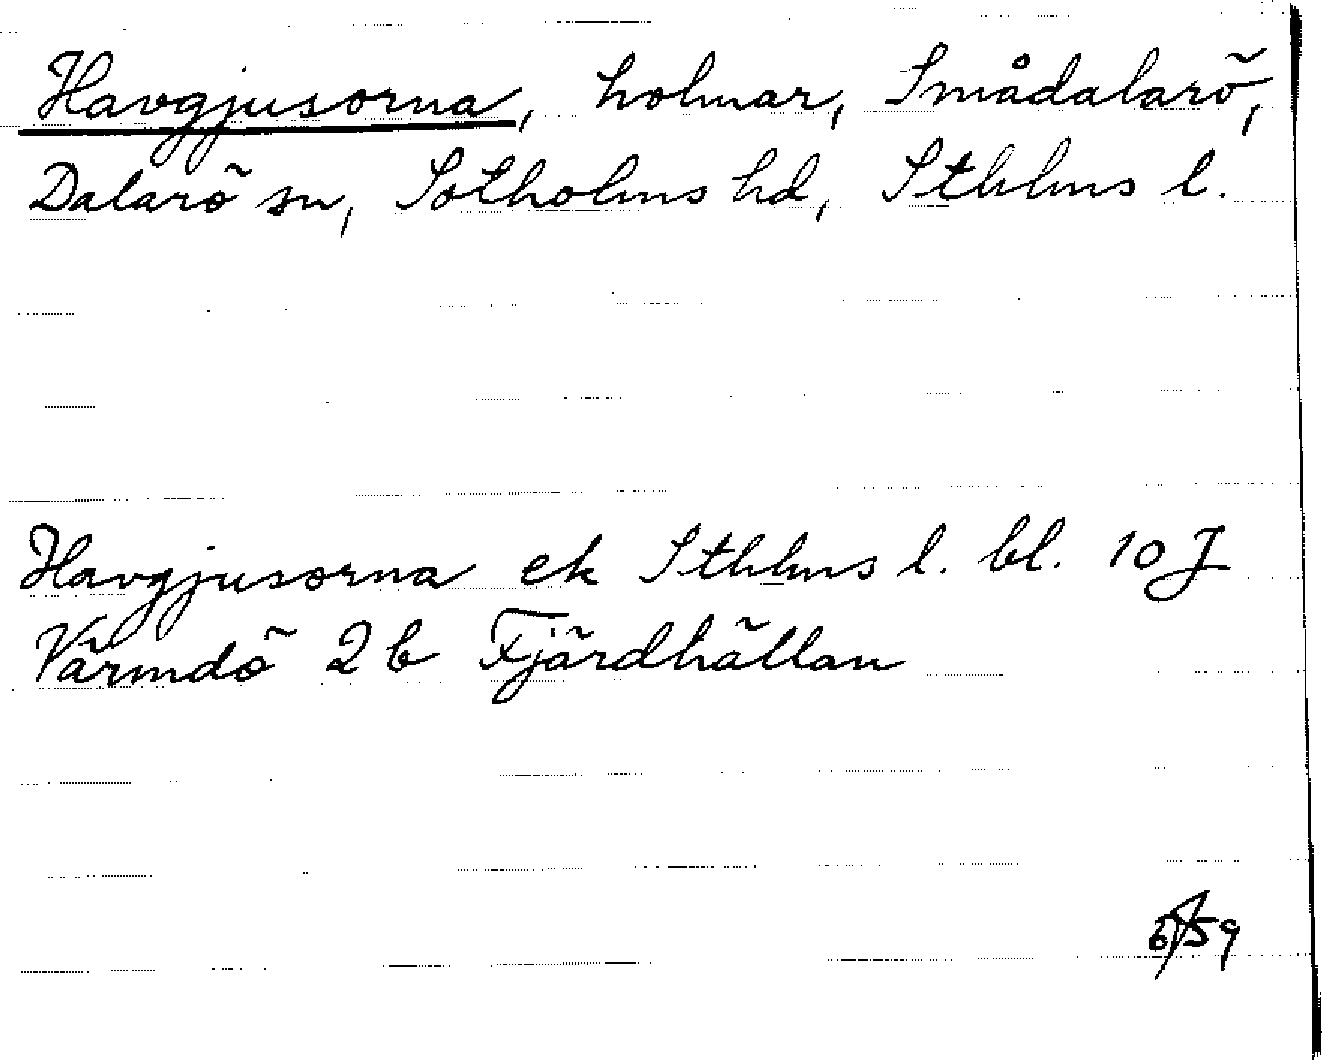 Havgjusorna, holmar, Smådalarö,
Dalarö sn, Sotholms hd, Sthlms l.
Havgjusorna ek Sthlms l. bl. 10 J
Värmdö 2 b Fjärdhällan